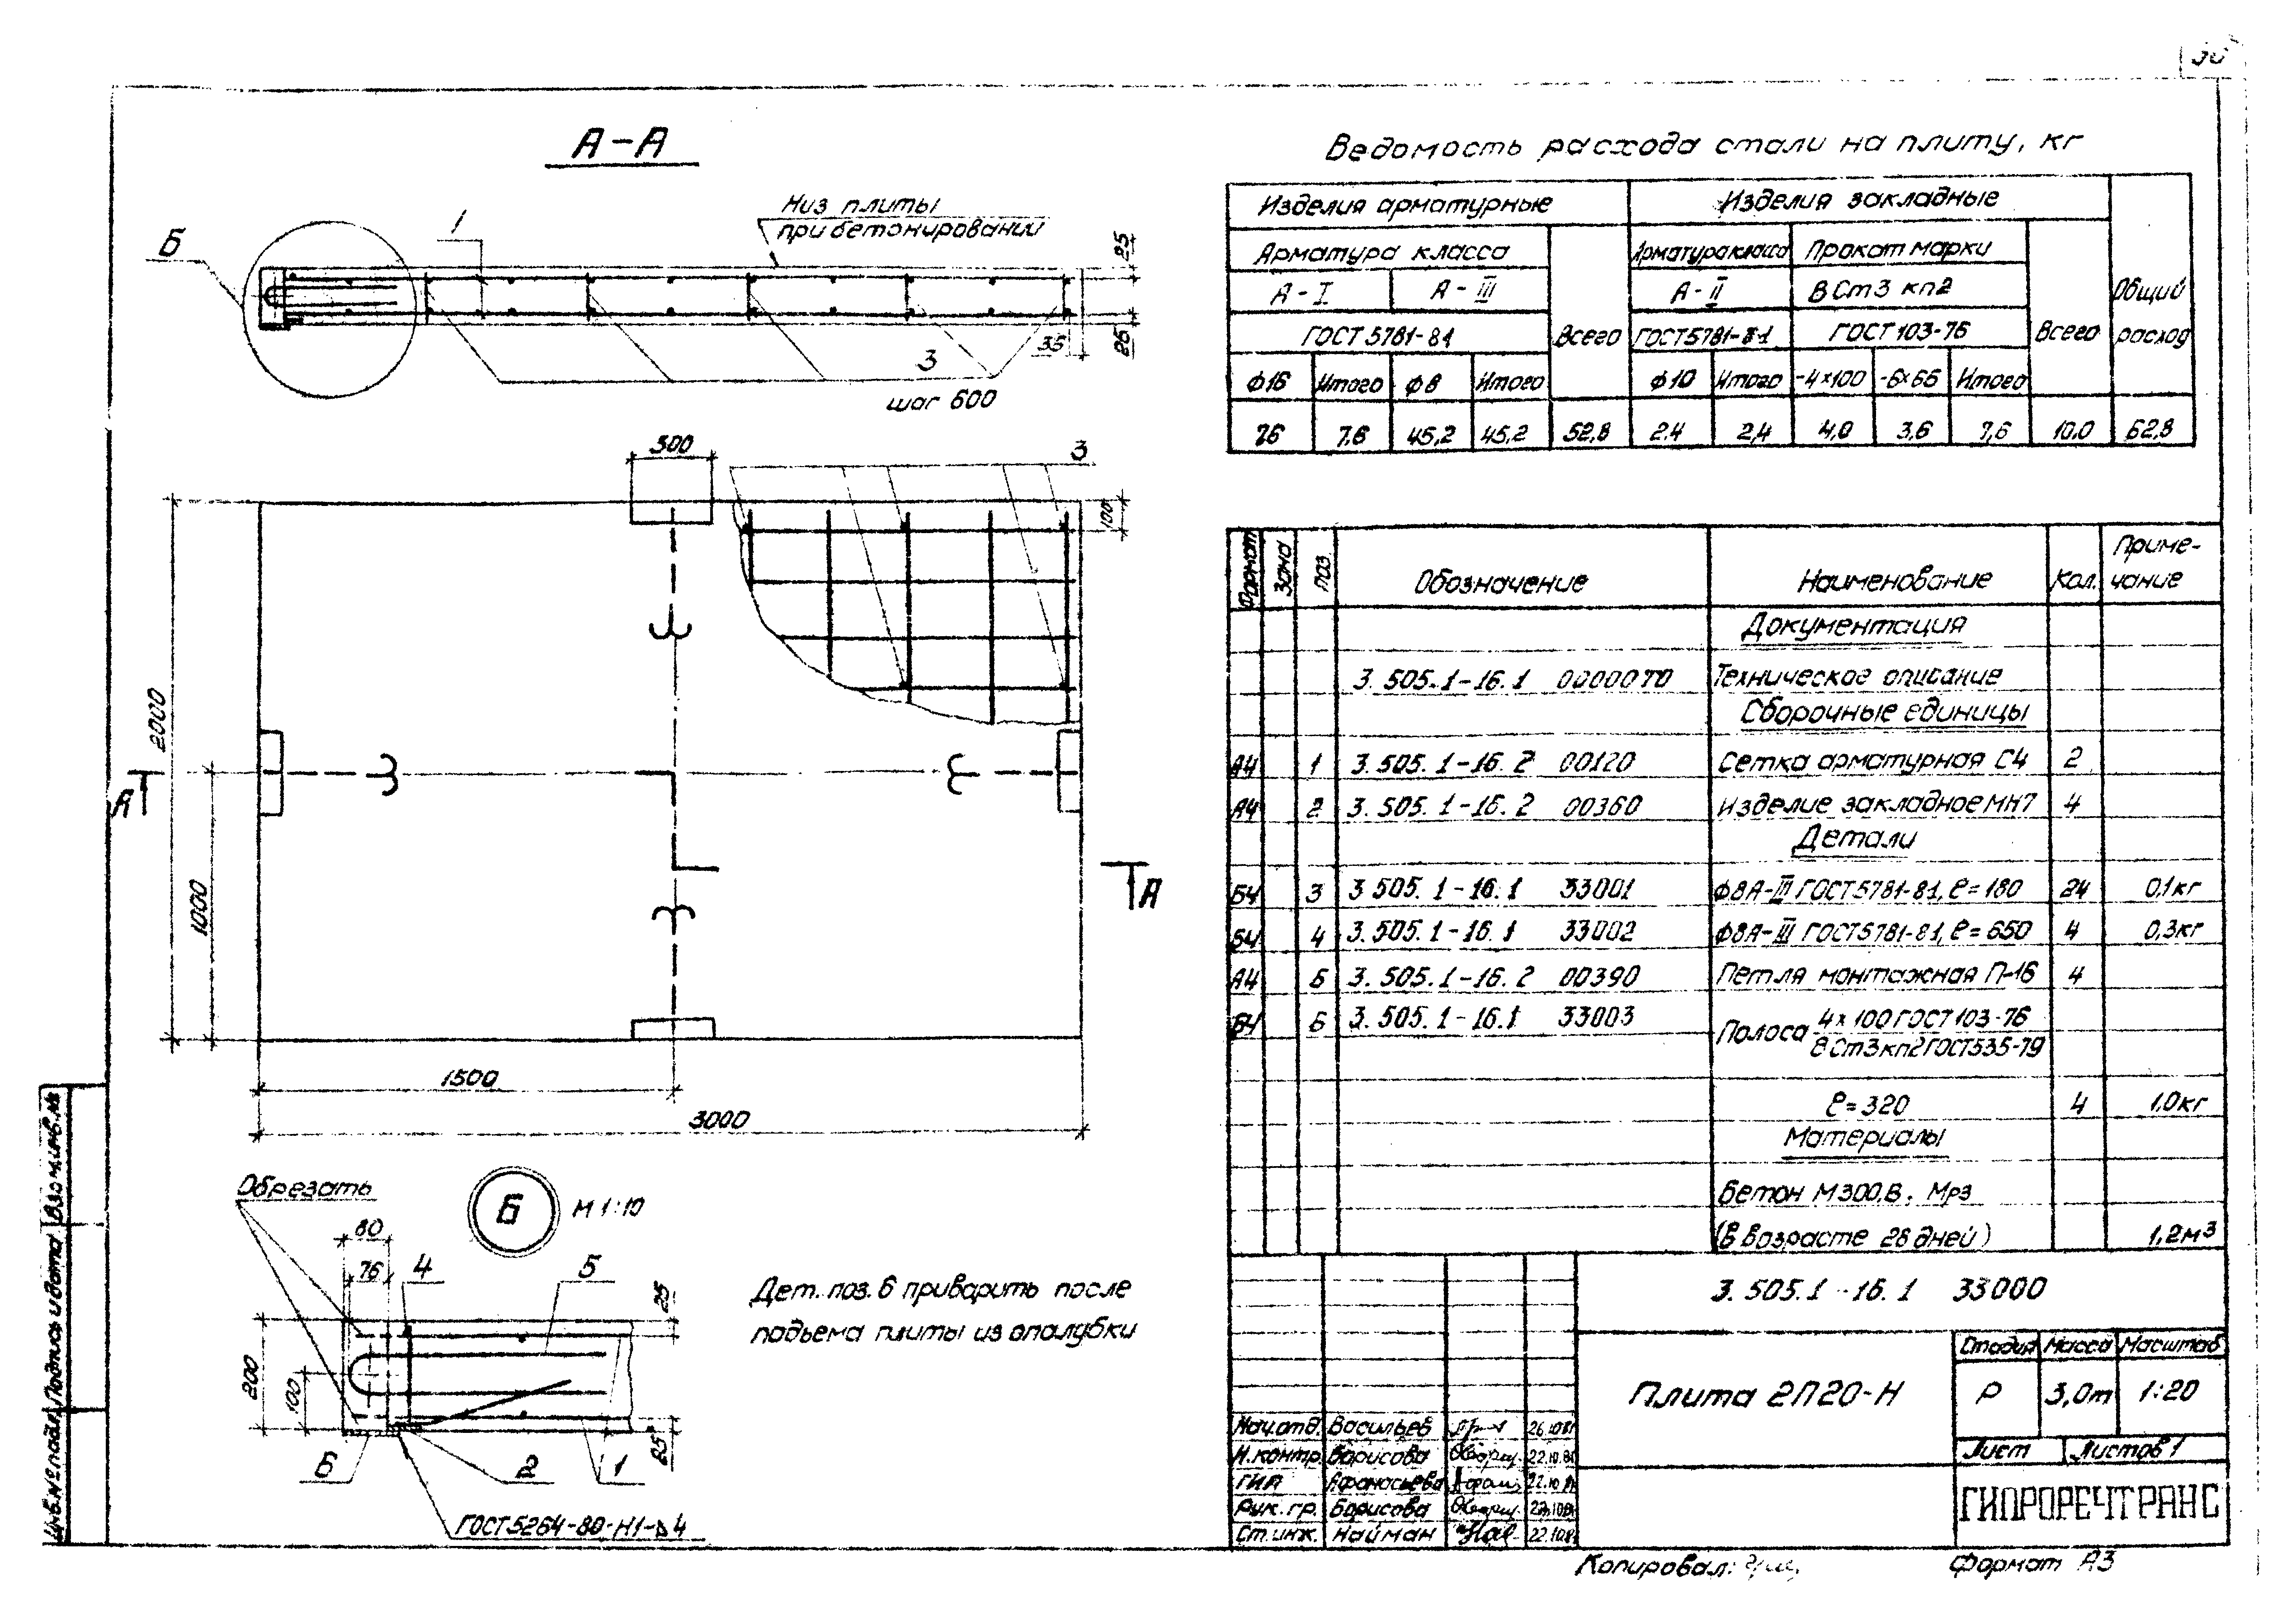 А-А
Низ плиты
при бетонировании
Б
1
25
25
35
3
шаг 600
300
3
100
2000
1000
А
А
1500
3000
Обрезать
Б
М 1:10
80
76
4
5
25
200
100
25
6
2
1
ГОСТ 5264-80-Н1-⊿4
Дет. поз. 6 приварить после
подъема плиты из опалубки
Ведомость расхода стали на плиту, кг
Изделия арматурные Изделия закладные
Арматура класса Арматура класса Прокат марки
А-I А-III А-II ВСт3 кп2 Общий
ГОСТ 5781-81 Всего ГОСТ 5781-81 ГОСТ 103-76 Всего расход
ф16 Итого ф8 Итого ф10 Итого -4×100 -6×66 Итого
7.6 7.6 45,2 45,2 52,8 2.4 2,4 4,0 3,6 7,6 10.0 62,8
Формат Зона Поз. Обозначение Наименование Кол. Приме-
чание
Документация
3.505.1-16.1 00000ТО Техническое описание
Сборочные единицы
А4 1 3.505.1-16.2 00120 Сетка арматурная С4 2
А4 2 3.505.1-16.2 00360 Изделие закладное МН7 4
Детали
Б4 3 3.505.1-16.1 33001 ф8А-III ГОСТ 5781-81, ℓ=180 24 0,1кг
Б4 4 3.505.1-16.1 33002 ф8А-III ГОСТ 5781-81, ℓ=650 4 0,3кг
А4 5 3.505.1-16.2 00390 Петля монтажная П-16 4
Б4 6 3.505.1-16.1 33003 Полоса 4×100 ГОСТ 103-76
ВСт3кп2 ГОСТ 535-79
ℓ=320 4 1,0кг
Материалы
Бетон М300, В, Мрз
(в возрасте 28 дней) 1,2м³
3.505.1-16.1 33000
Плита 2П20-Н
Стадия Масса Масштаб
Р 3,0т 1:20
Лист Листов 1
ГИПРОРЕЧТРАНС
Нач.отд. Васильев
Н.контр. Борисова
ГИП Афанасьева
Рук.гр. Борисова
Ст.инж. Найман
Инв.№ подл. Подпись и дата Взам.инв.№
Копировал:
Формат А3